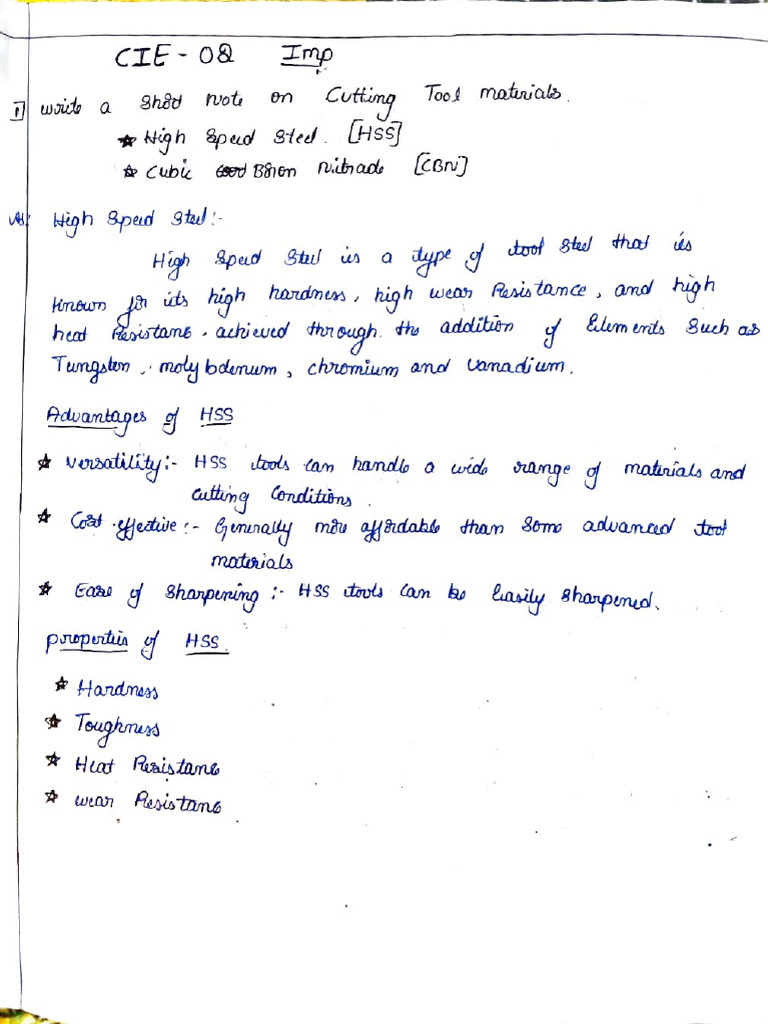 CIE - 02 Imp
1 write a short note on Cutting Tool materials.
☆ High Speed Steel. [HSS]
☆ Cubic Boron Nitrade [CBN]
As: High Speed Steel:-
High Speed Steel is a type of tool steel that is
known for its high hardness, high wear Resistance, and high
heat Resistane. achieved through the addition of Elements Such as
Tungsten, molybdenum, chromium and vanadium.
Advantages of HSS
☆ Versatility:- HSS tools can handle a wide range of materials and
cutting Conditions.
☆ Cost effective:- Generally more affordable than Some advanced tool
materials
☆ Ease of Sharpening:- HSS tools can be Easily Sharpened.
properties of HSS.
☆ Hardness
☆ Toughness
☆ Heat Resistane
☆ wear Resistane